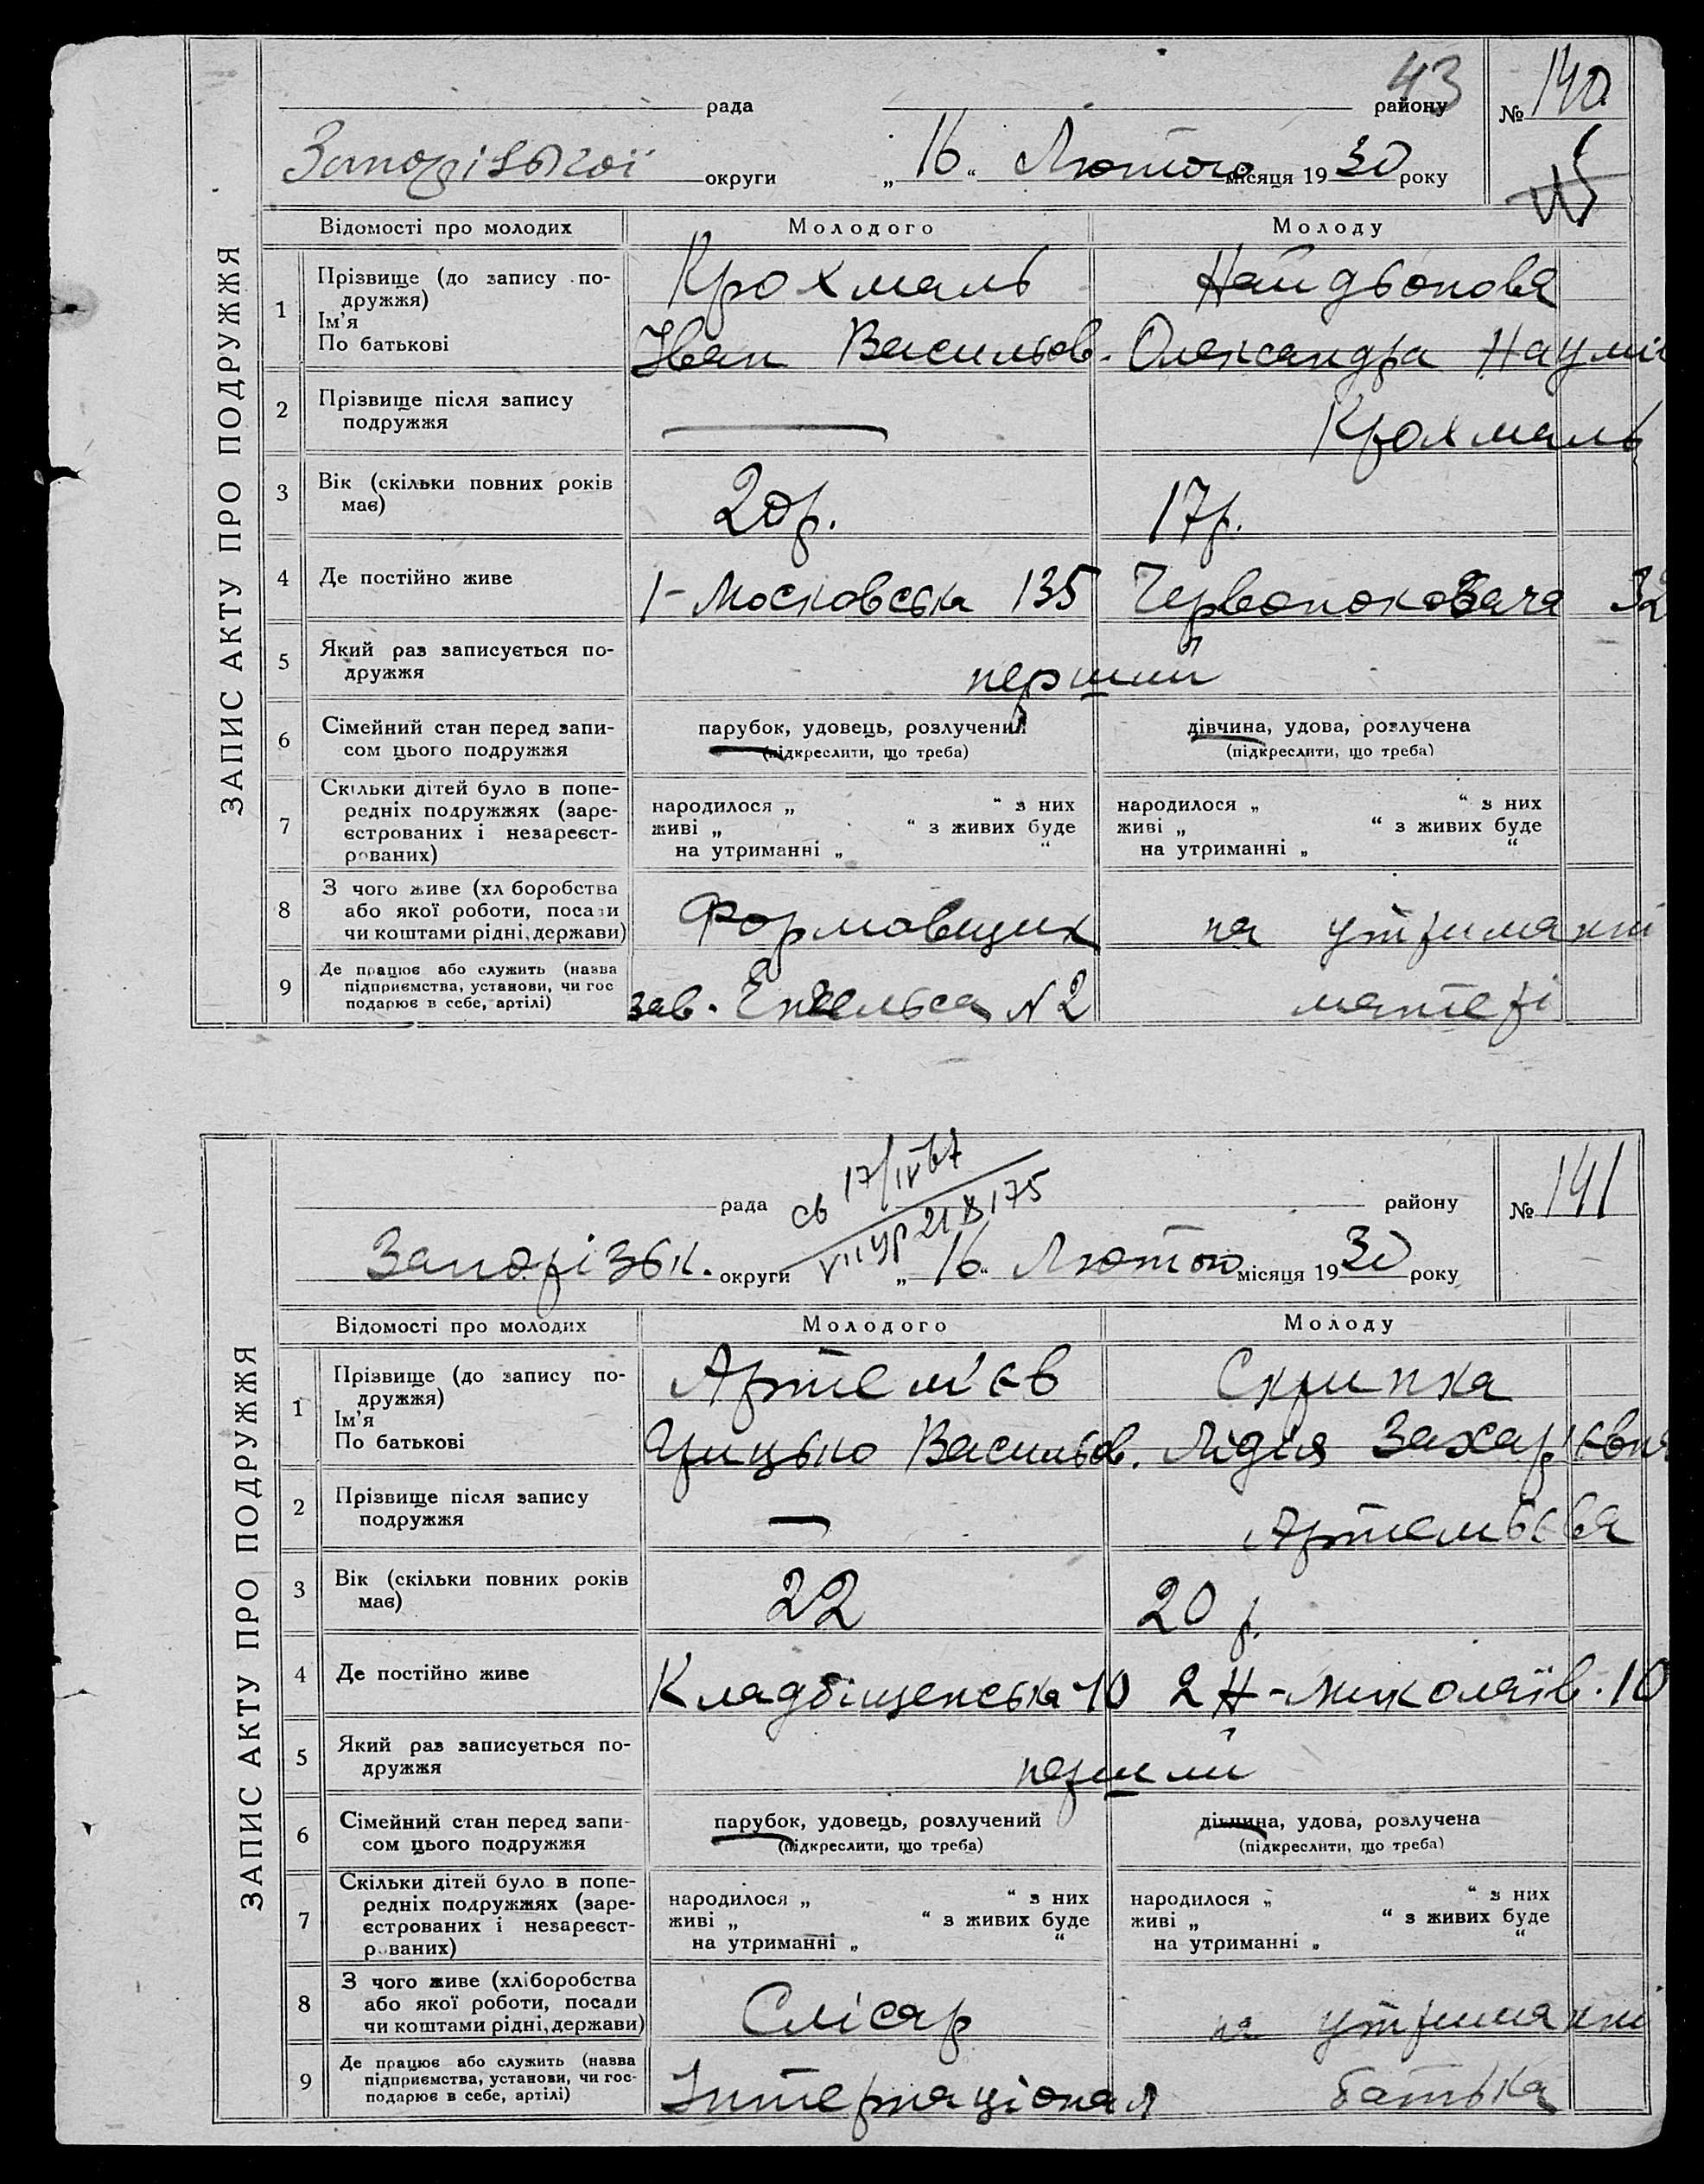 43
рада району № 140
Запорізької округи „ 16 “ Лютого місяця 19 30 року
ЗАПИС АКТУ ПРО ПОДРУЖЖЯ
Відомості про молодих Молодого Молоду
1 Прізвище (до запису по- Крохмаль Найдьонова
дружжя)
Ім'я
По батькові Іван Васильов. Олександра Наумів
2 Прізвище після запису — Крохмаль
подружжя
3 Вік (скільки повних років 20 р. 17 р.
має)
4 Де постійно живе 1-Московська 135 Червонокозача 32
5 Який раз записується по- перший
дружжя
6 Сімейний стан перед запи- парубок, удовець, розлучений дівчина, удова, розлучена
сом цього подружжя (підкреслити, що треба) (підкреслити, що треба)
7 Скільки дітей було в попе-
редніх подружжях (заре- народилося „ “ з них народилося „ “ з них
єстрованих і незареєст- живі „ “ з живих буде живі „ “ з живих буде
рованих) на утриманні „ “ на утриманні „ “
8 З чого живе (хл боробства
або якої роботи, посади Формовщик на утриманні
чи коштами рідні, держави)
9 Де працює або служить (назва
підприємства, установи, чи гос зав. Енгельса N 2 матері
подарює в себе, артілі)
св 17/IV 67
рада району № 141
Запорізьк. округи „ 16 “ Лютого місяця 19 30 року
ЗАПИС АКТУ ПРО ПОДРУЖЖЯ
Відомості про молодих Молодого Молоду
1 Прізвище (до запису по- Артем'єв Скрипка
дружжя)
Ім'я
По батькові Грицько Васильов. Лідія Захарієвна
2 Прізвище після запису — Артемьєва
подружжя
3 Вік (скільки повних років 22 20 р.
має)
4 Де постійно живе Кладбіщенська 10 2 Н-Миколаїв. 10
5 Який раз записується по- перший
дружжя
6 Сімейний стан перед запи- парубок, удовець, розлучений дівчина, удова, розлучена
сом цього подружжя (підкреслити, що треба) (підкреслити, що треба)
7 Скільки дітей було в попе-
редніх подружжях (заре- народилося „ “ з них народилося „ “ з них
єстрованих і незареєст- живі „ “ з живих буде живі „ “ з живих буде
р ваних) на утриманні „ “ на утриманні „ “
8 З чого живе (хліборобства
або якої роботи, посади Слісар на утриманні
чи коштами рідні, держави)
9 Де працює або служить (назва
підприємства, установи, чи гос- Інтернаціонал батька
подарює в себе, артілі)